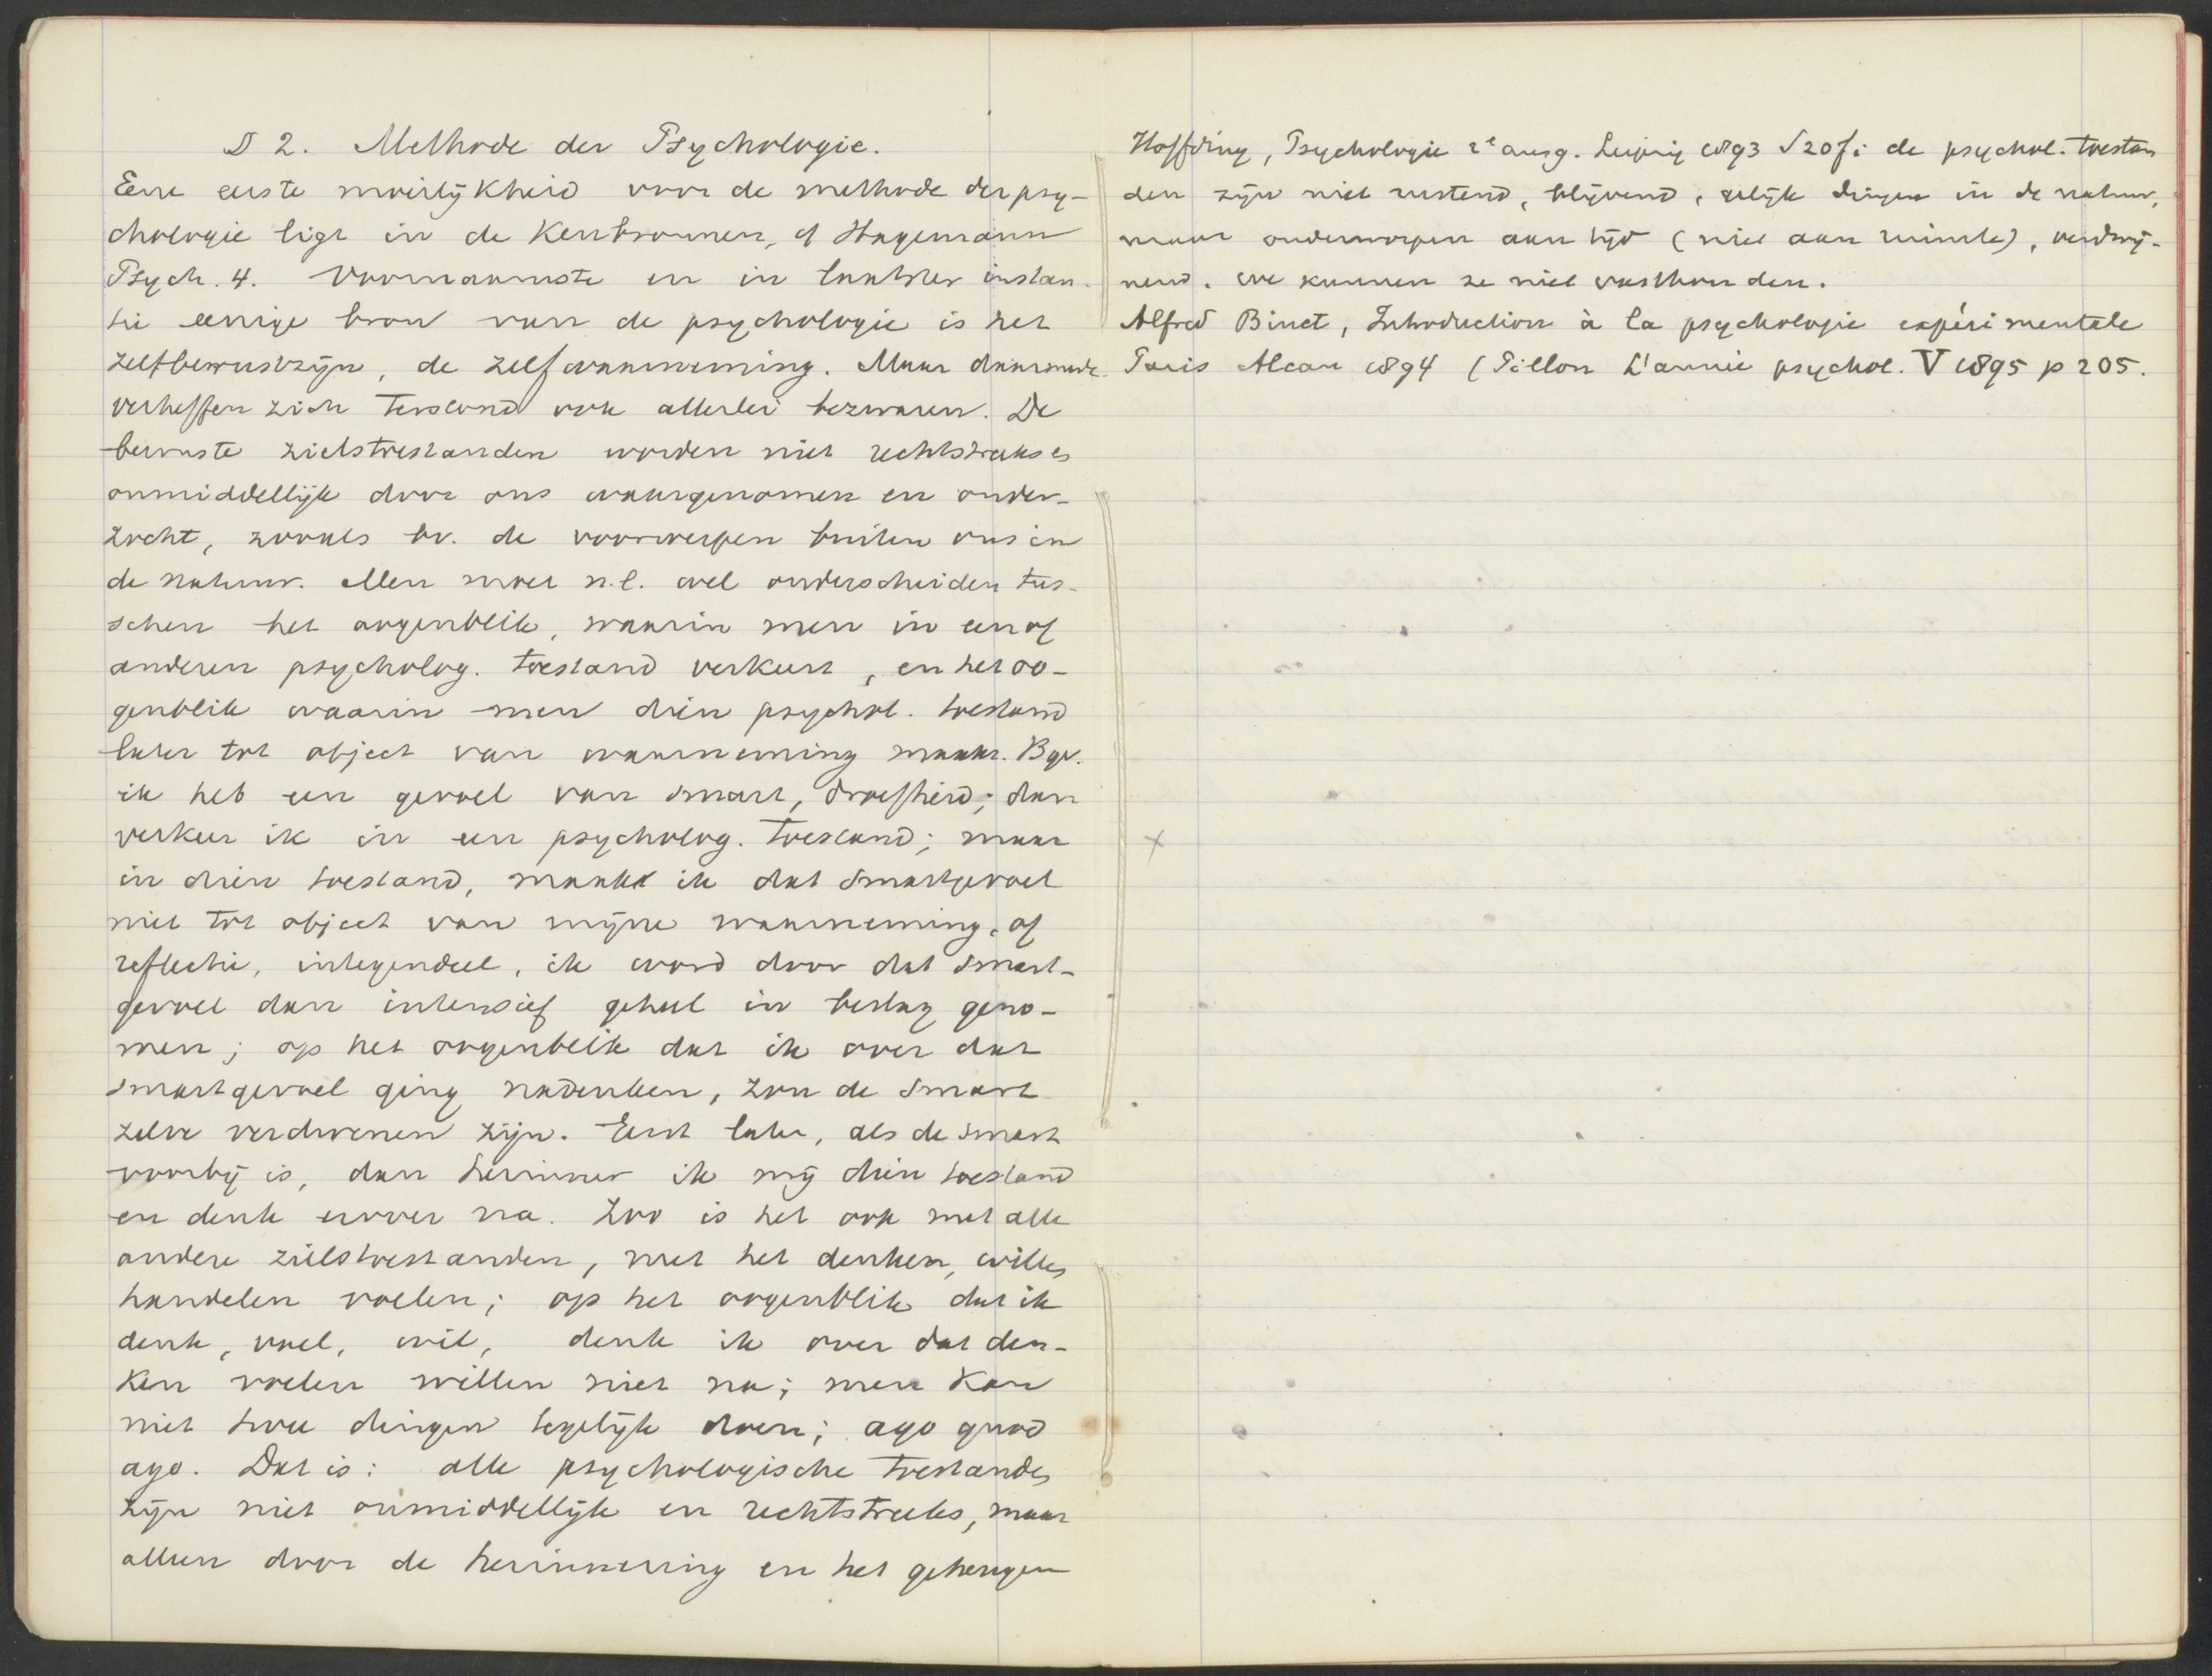 § 2. Methode der Psychologie.
Eene eerste moeilijkheid voor de methode der psy-
chologie ligt in de Kenbronnen, cf Hagemann
Psych. 4. Voornaamste en in laatster instan-
tie eenige bron van de psychologie is het
zelfbewustzijn, de zelfwaarneming. Maar daarmede
verheffen zich terstond ook allerlei bezwaren. De
bewuste zielstoestanden worden niet rechtstreeks en
onmiddellijk door ons waargenomen en onder-
zocht, zooals bv. de voorwerpen buiten ons in
de natuur. Men moet n.l. wel onderscheiden tus-
schen het oogenblik, waarin men in een of
anderen psycholog. toestand verkeert, en het oo-
genblik waarin men dien psychol. toestand
later tot object van waarneming maakt. Bijv.
ik heb een gevoel van smart, droefheid; dan
verkeer ik in een psycholog. toestand; maar
in dien toestand, maak ik dat smartgevoel
niet tot object van mijne waarneming, of
reflectie, integendeel, ik word door dat smart-
gevoel dan intensief geheel in beslag geno-
men; op het oogenblik dat ik over dat
smartgevoel ging nadenken, zou de smart
zelve verdwenen zijn. Eerst later, als de smart
voorbij is, dan herinner ik mij dien toestand
en denk erover na. Zoo is het ook met alle
andere zielstoestanden, met het denken, willen
handelen voelen; op het oogenblik dat ik
denk, voel, wil, denk ik over dat den-
ken voelen willen niet na; men kan
niet twee dingen tegelijk doen; ago quod
ago. Dat is: alle psychologische toestanden
zijn niet onmiddellijk en rechtstreeks, maar
alleen door de herinnering en het geheugen
Höffding, Psychologie 2e ausg. Leipzig 1893 S 20f: de psychol. toestan
den zijn niet rustend, blijvend, gelijk dingen in de natuur,
maar onderworpen aan tijd (niet aan ruimte), verdwij-
nend. we kunnen ze niet vasthouden.
Alfred Binet, Introduction à la psychologie expérimentale
Paris Alcan 1894 (Pillon L'année psychol. V 1895 p 205.
x